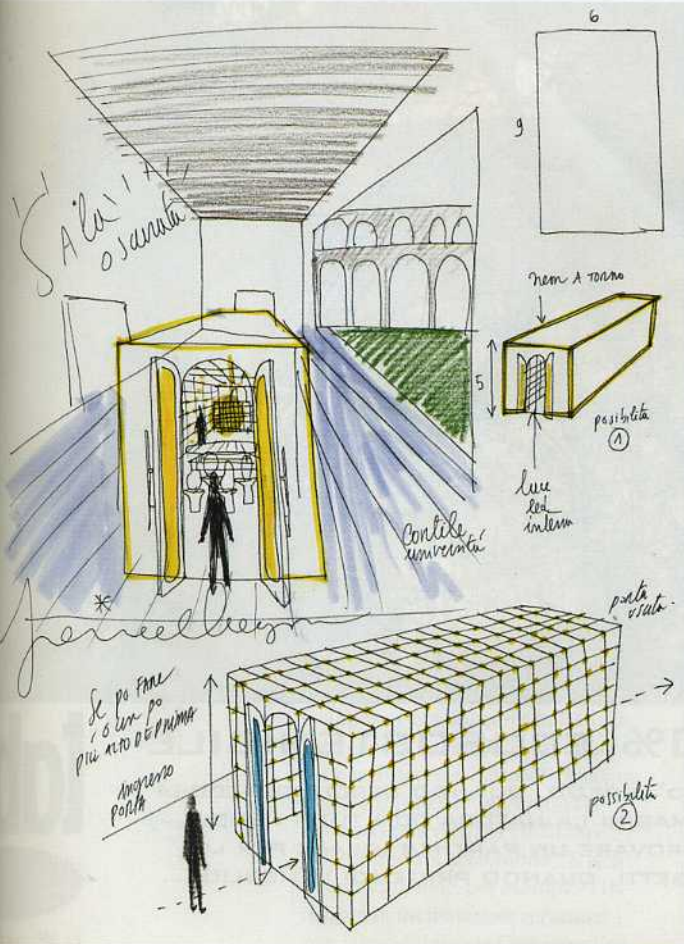 6
9
Sala
oscurata
nem A TORNO
5
possibilità
1
luce
led
interna
Contile
università
*
porta
uscita.
Se po FARE
o un po
più ALTO DE PRIMA
ingresso
PORTA
possibilità
2